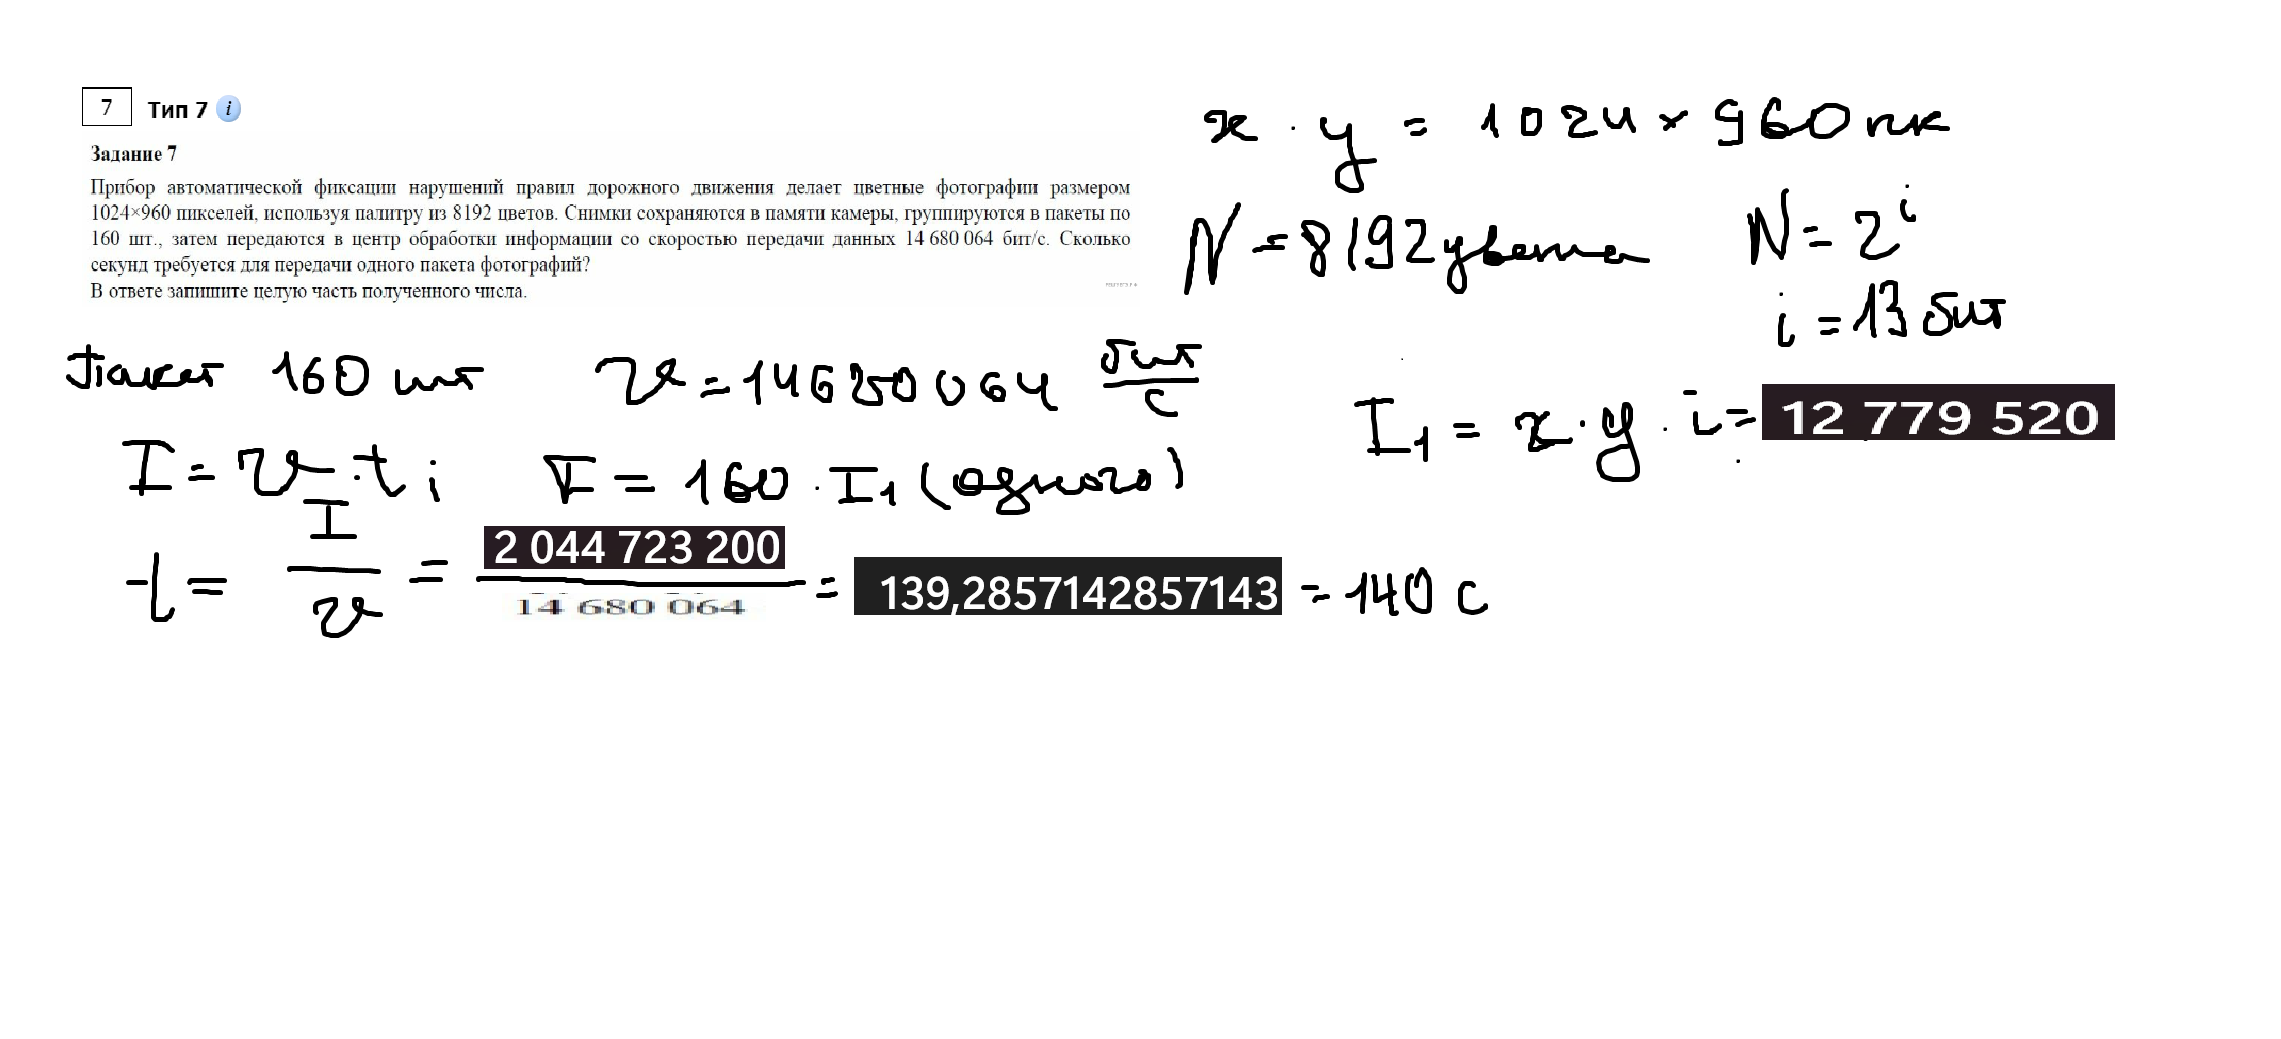 7 Тип 7 i
Задание 7
Прибор автоматической фиксации нарушений правил дорожного движения делает цветные фотографии размером
1024×960 пикселей, используя палитру из 8192 цветов. Снимки сохраняются в памяти камеры, группируются в пакеты по
160 шт., затем передаются в центр обработки информации со скоростью передачи данных 14 680 064 бит/с. Сколько
секунд требуется для передачи одного пакета фотографий?
В ответе запишите целую часть полученного числа.
x · y = 1024 × 960 пк
N = 8192 цвета N = 2^i
i = 13 бит
Пакет 160 шт v = 14680064 бит/с
I₁ = x · y · i = 12 779 520
I = v · t ; I = 160 · I₁ (одного)
t = I/v = 2 044 723 200 / 14 680 064 = 139,2857142857143 = 140 с